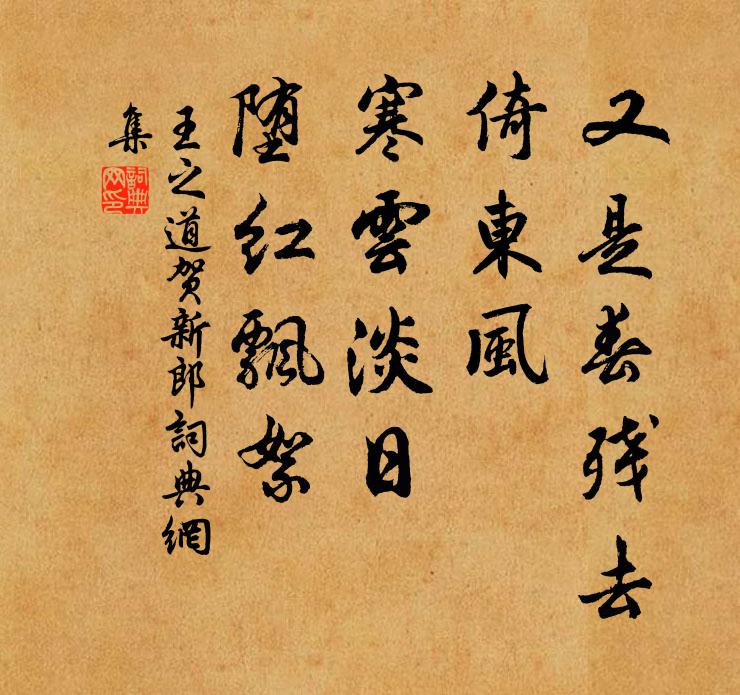 又是春残去
倚東風
寒雲淡日
堕红飄絮
王之道贺新郎詞典網
集
詞典
网印